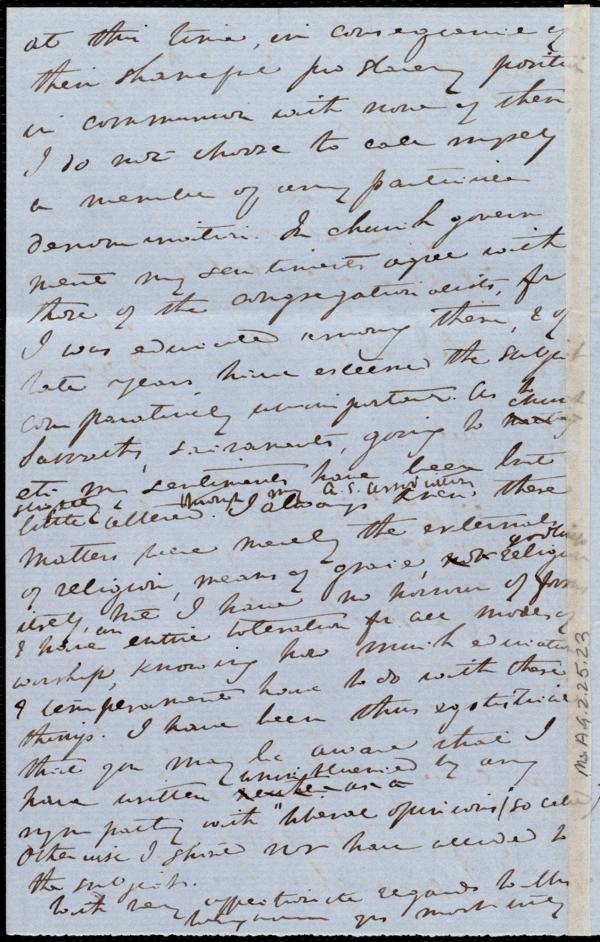 at this time, in consequence of
their shameful pro slavery position
in communion with none of them,
I do not choose to call myself
a member of any particular
denomination. In church govern
ment my sentiments agree with
those of the congregationalists, for
I was educated among them, & of
late years have esteemed the subject
comparatively unimportant. As to
Sabbaths, sacraments, going to church
etc. my sentiments have been but
little altered through my A. S. association
I always knew these
matters were merely the externals
of religion, means of grace, not religion
itself, & I have no horror of forms
& have an entire toleration for all modes of
worship, knowing how much education
& temperament have to do with these
things. I have been thus egotistical
that you may be aware that I
have written uninfluenced by any
sympathy with "liberal opinions" (so called)
Otherwise I should not have alluded to
the subject.
With very affectionate regards to
yrs most truly
Ms.A.9.2.25.23